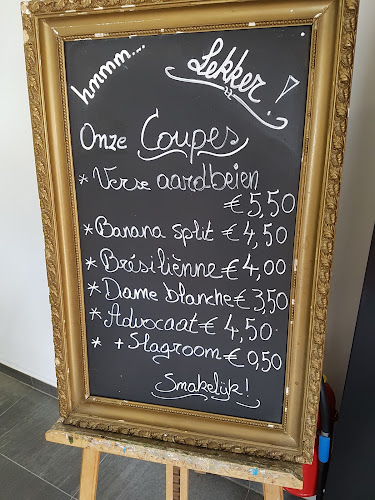 hmmm... Lekker!
Onze Coupes
* Verse aardbeien
€ 5,50
* Banana split € 4,50
* Brésiliènne € 4,00
* Dame blanche € 3,50
* Advocaat € 4,50
* + Slagroom € 0,50
Smakelijk!